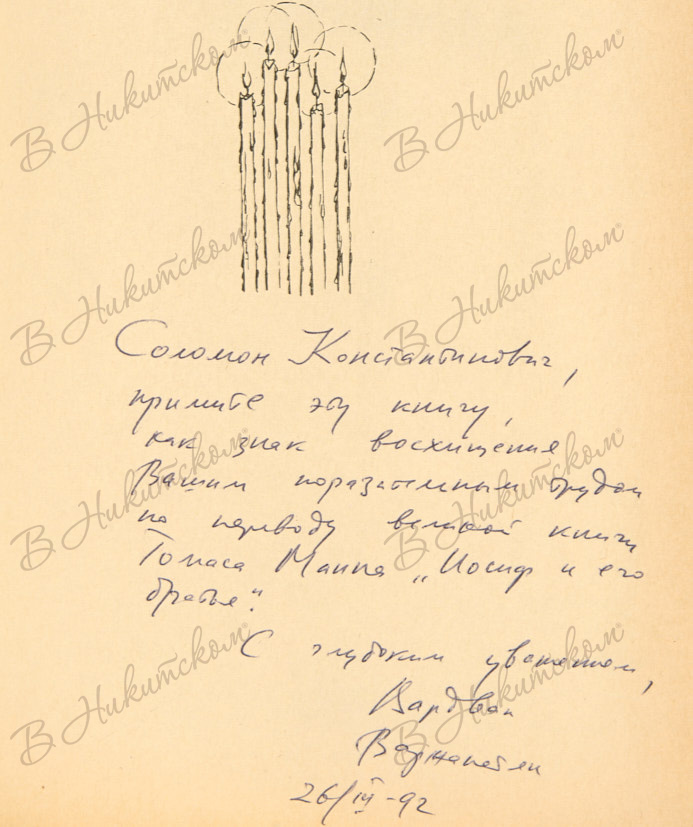 Соломон Константинович,
примите эту книгу,
как знак восхищения
Вашим поразительным трудом
по переводу великой книги
Томаса Манна „Иосиф и его
братья“.
С глубоким уважением,
Вардван
Варжапетян
26/III-92
В Никитском
В Никитском
В Никитском
В Никитском
В Никитском
В Никитском
В Никитском
В Никитском